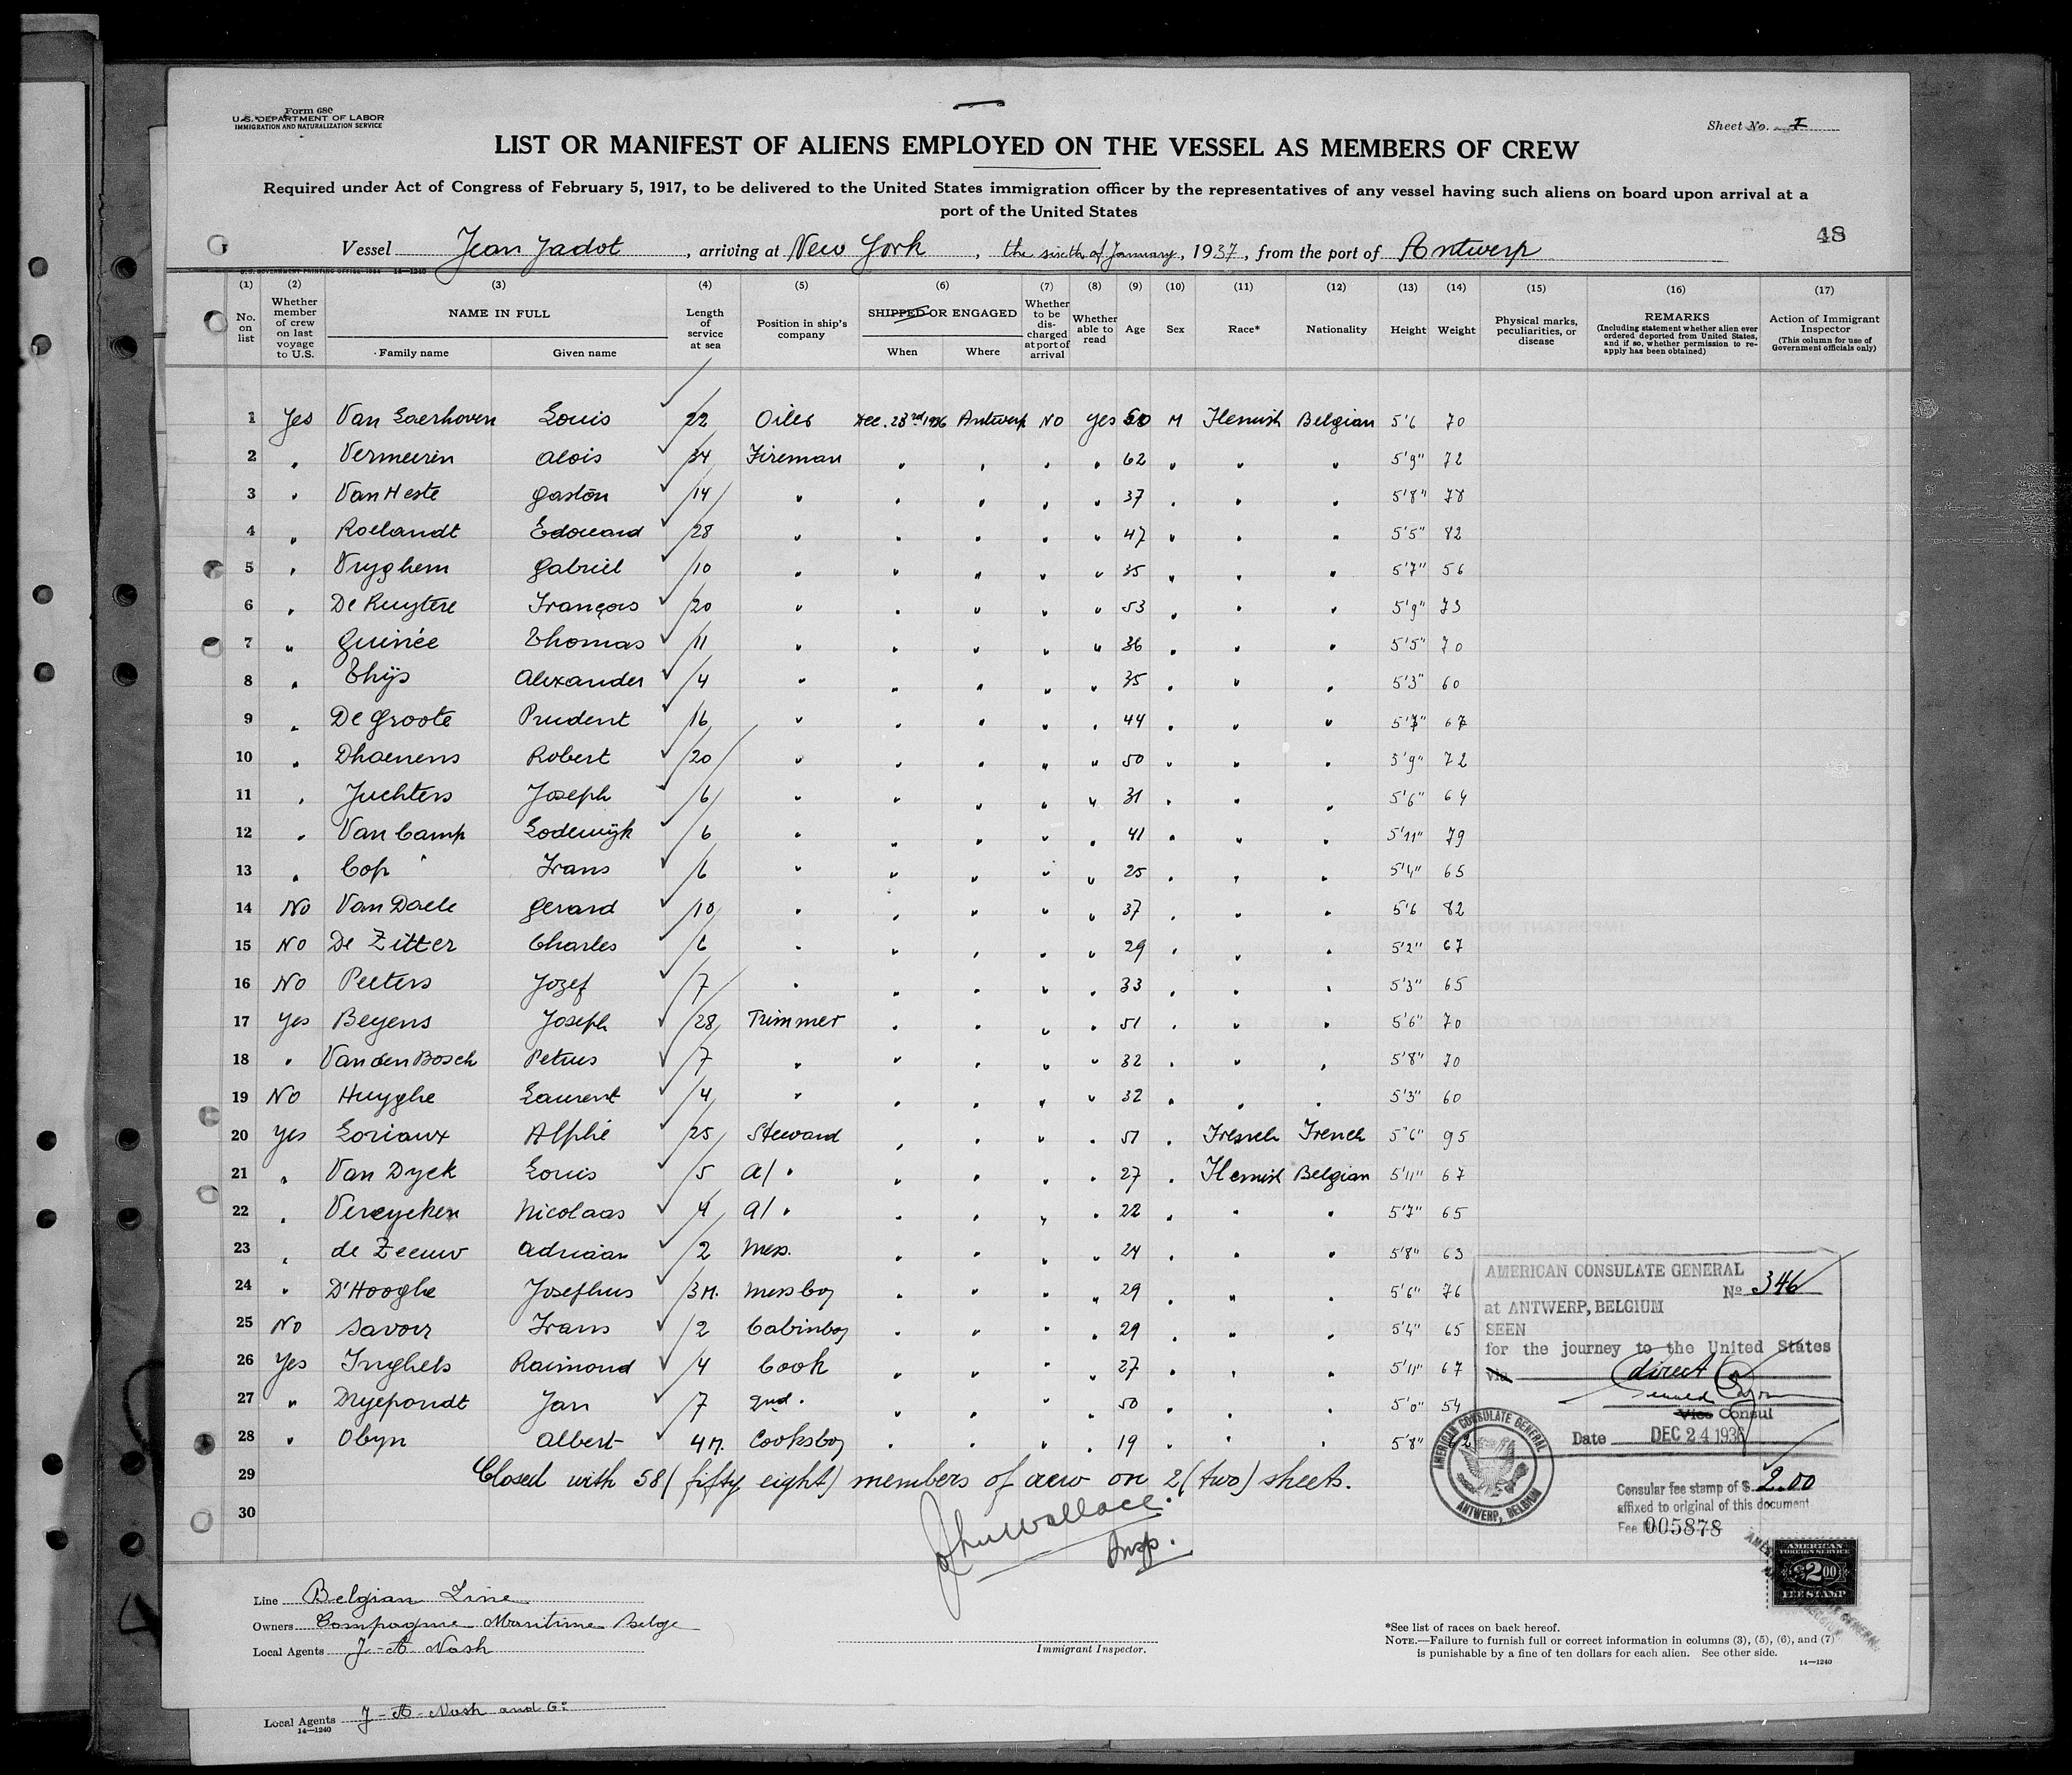 Form 680
U.S. DEPARTMENT OF LABOR
IMMIGRATION AND NATURALIZATION SERVICE
Sheet No. I
LIST OR MANIFEST OF ALIENS EMPLOYED ON THE VESSEL AS MEMBERS OF CREW
Required under Act of Congress of February 5, 1917, to be delivered to the United States immigration officer by the representatives of any vessel having such aliens on board upon arrival at a
port of the United States
48
Vessel Jean Jadot, arriving at New York, the sixth of January, 1937, from the port of Antwerp
U.S. GOVERNMENT PRINTING OFFICE 14—1240
(1) (2) (3) (4) (5) (6) (7) (8) (9) (10) (11) (12) (13) (14) (15) (16) (17)
No. on list | Whether member of crew on last voyage to U.S. | NAME IN FULL Family name Given name | Length of service at sea | Position in ship's company | SHIPPED OR ENGAGED When Where | Whether to be discharged at port of arrival | Whether able to read | Age | Sex | Race* | Nationality | Height | Weight | Physical marks, peculiarities, or disease | REMARKS (Including statement whether alien ever ordered deported from United States, and if so, whether permission to re-apply has been obtained) | Action of Immigrant Inspector (This column for use of Government officials only)
1 Yes Van Laerhoven Louis 22 Oiler Dec. 23rd 1936 Antwerp No Yes 50 M Flemish Belgian 5'6 70
2 " Vermeeren Alois 34 Fireman " " " " 62 " " " 5'9" 72
3 " Van Heste Gaston 14 " " " " " 37 " " " 5'8" 78
4 " Roelandt Edouard 28 " " " " " 47 " " " 5'5" 82
5 " Vryghem Gabriel 10 " " " " " 35 " " " 5'7" 56
6 " De Ruytere François 20 " " " " " 53 " " " 5'9" 73
7 " Guinée Thomas 11 " " " " " 36 " " " 5'5" 70
8 " Thijs Alexander 4 " " " " " 35 " " " 5'3" 60
9 " De Groote Prudent 16 " " " " " 44 " " " 5'7" 67
10 " Dhaenens Robert 20 " " " " " 50 " " " 5'9" 72
11 " Juchters Joseph 6 " " " " " 31 " " " 5'6" 64
12 " Van Camp Lodewijk 6 " " " " " 41 " " " 5'11" 79
13 " Cop Frans 6 " " " " " 25 " " " 5'4" 65
14 No Van Daele Gerard 10 " " " " " 37 " " " 5'6 82
15 No De Zitter Charles 6 " " " " " 29 " " " 5'2" 67
16 No Peeters Jozef 7 " " " " " 33 " " " 5'3" 65
17 Yes Beyens Joseph 28 Trimmer " " " " 51 " " " 5'6" 70
18 " Van den Bosch Petrus 7 " " " " " 32 " " " 5'8" 70
19 No Huyghe Laurent 4 " " " " " 32 " " " 5'3" 60
20 Yes Loriaux Alphé 25 Steward " " " " 51 " French French 5'6" 95
21 " Van Dyck Louis 5 a/ " " " " " 27 " Flemish Belgian 5'11" 67
22 " Vereycken Nicolaas 4 a/ " " " " " 22 " " " 5'7" 65
23 " de Zeeuw Adriaan 2 Mess. " " " " 24 " " " 5'8" 63
24 " D'Hooghe Josephus 3 M. Messboy " " " " 29 " " " 5'6" 76
25 No Savoir Frans 2 Cabinboy " " " " 29 " " " 5'4" 65
26 Yes Inghels Raimond 4 Cook " " " " 27 " " " 5'11" 67
27 " Dryepondt Jan 7 2nd. " " " " 50 " " " 5'0" 54
28 " Obyn Albert 4 M. Cooksboy " " " " 19 " " " 5'8" 62
29 Closed with 58 (fifty eight) members of crew on 2 (two) sheets.
30
John Wallace
Insp.
AMERICAN CONSULATE GENERAL
No 346
at ANTWERP, BELGIUM
SEEN
for the journey to the United States
via direct
Vice Consul
Date DEC 24 1936
AMERICAN CONSULATE GENERAL
ANTWERP, BELGIUM
Consular fee stamp of $ 2.00
affixed to original of this document
Fee No 005878
AMERICAN
FOREIGN SERVICE
$2.00
FEE STAMP
Line Belgian Line
Owners Compagnie Maritime Belge
Local Agents J-A Nash
Immigrant Inspector.
*See list of races on back hereof.
NOTE.—Failure to furnish full or correct information in columns (3), (5), (6), and (7)
is punishable by a fine of ten dollars for each alien. See other side.
14—1240
Local Agents J-A-Nash and Co
14—1240